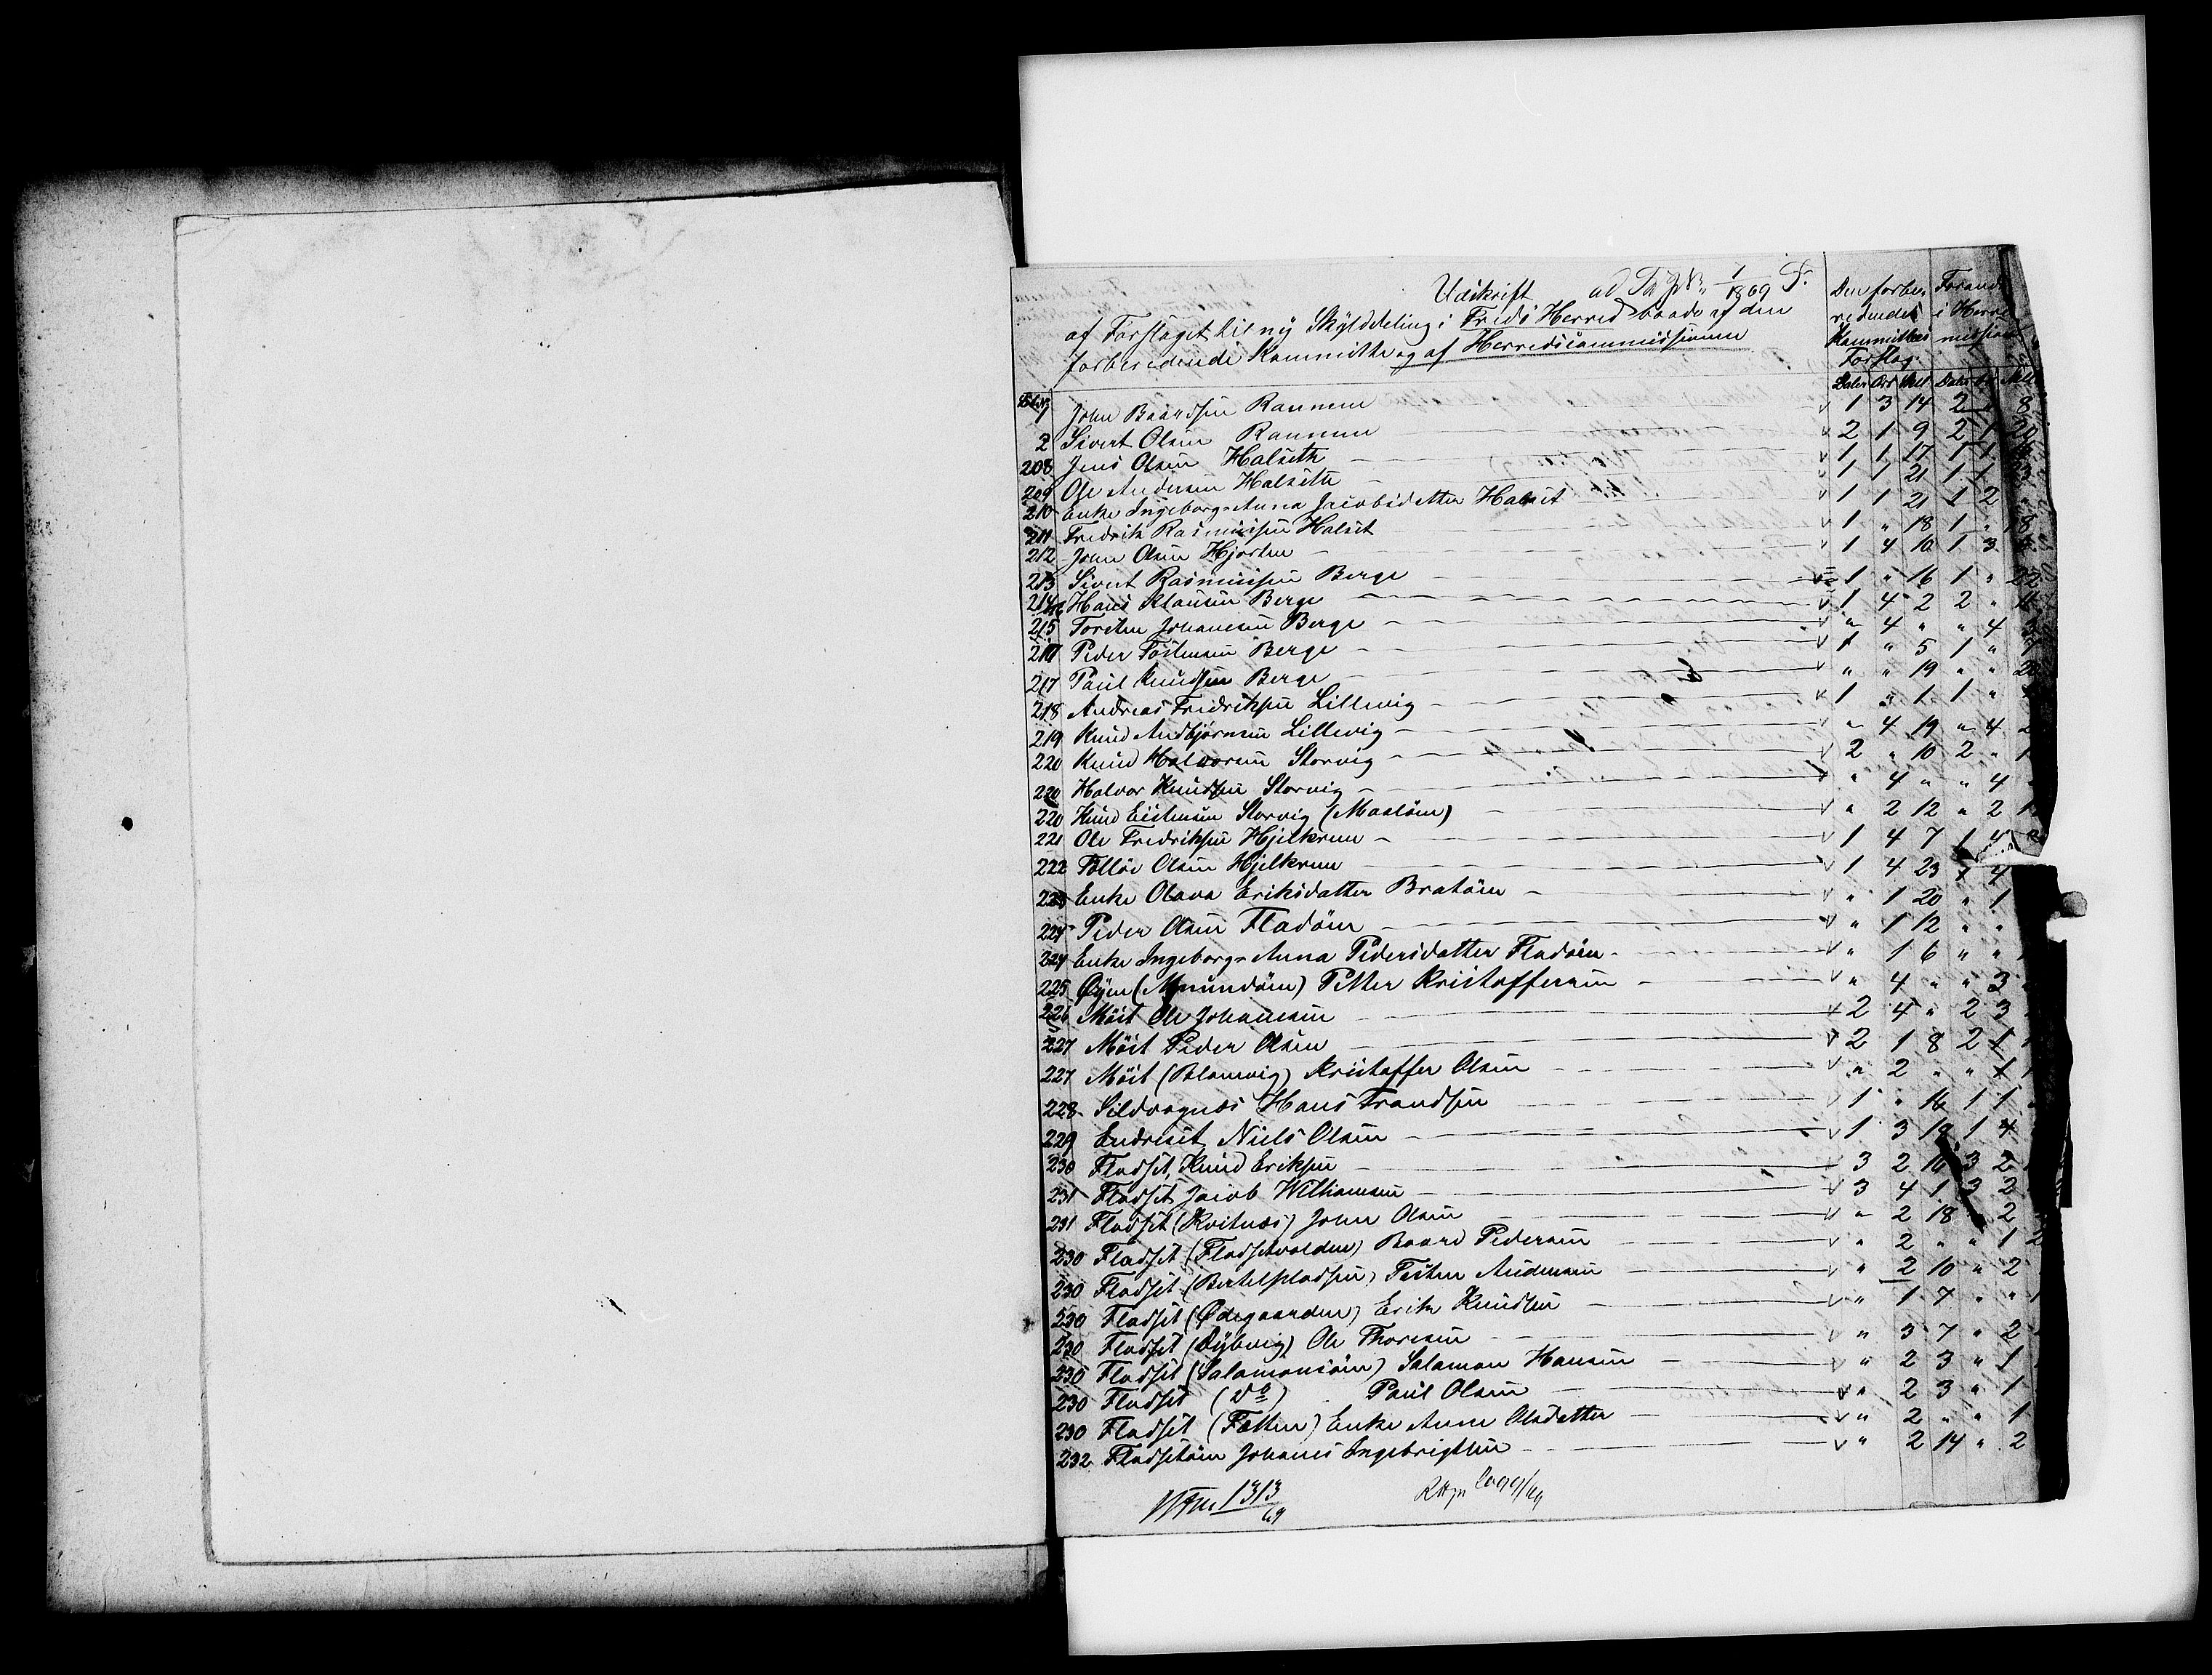 Udskrift ad
1869
af Forslaget til ny Skylddeling i Freds Herred baade af den
forberedende Kommitte og af Herredscommissionen
Den forbe- Forand
redende i Herre
Kommittes missio
Forslag.
Daler Ort Skil Daler Ort Skil
1 John Baardsen Rannem 1 3 14 2 " 8
2 Sivert Olsen Rannem 2 1 9 2 1
208 Jens Olsen Halseth 1 1 17 1 1
209 Ole Andersen Halseth 1 1 21 1 1
210 Enke Ingeborg-Anna Jacobsdatter Halset 1 1 21 1 2
211 Fredrik Rasmussen Halset 1 " 18 1 " 18
212 John Olsen Hjorten 1 4 10 1 3
213 Sivert Rasmussen Berge 1 " 16 1 " 22
214 Hans Klausen Berge 1 4 2 2 "
215 Torsten Johansen Berge " 4 " " 4
217 Peder Töstensen Berge 1 " 5 1 "
217 Paul Knudsen Berge " " 19 " " 20
218 Andreas Fredriksen Lillevig 1 " 1 1 "
219 Knud Andbjörnsen Lillevig " 4 19 " 4
220 Knud Halvorsen Storvig 2 " 10 2 " 1
220 Halvor Knudsen Storvig " 4 " " 4
220 Knud Eistensen Storvig (Maaløen) " 2 12 " 2 1
221 Ole Fredriksen Hjelkrem 1 4 7 1 4
222 Tollöv Olsen Hjelkrem 1 4 23 1 4
223 Enke Olava Eriksdatter Bratøen " 1 20 " 1
224 Peder Olsen Fladøen " 1 12 " "
224 Enke Ingeborg-Anna Pedersdatter Fladøen " 1 6 " "
225 Øyen (Amundøen) Petter Kristoffersen " 4 " " 3
226 Möst Ole Johansen 2 4 " 2 3
227 Möst Peder Olsen 2 1 8 2 1
227 Möst (Blomvig) Kristoffer Olsen " 2 " " 1
228 Sildvagnæs Hans Trondsen 1 " 16 1 1
229 Endreset Niels Olsen 1 3 19 1 4
230 Fladset, Knud Eriksen 3 2 16 3 2
231 Fladset Jacob Williamsen 3 4 1 3 2
231 Fladset (Kvitnæs) John Olsen " 2 18 " 2
230 Fladset (Fladsetvolden) Baard Pedersen " 2 " " 1 2
230 Fladset (Bertelspladsen) Testen Andersen " 2 10 " 2
230 Fladset (Ødegaarden) Erik Knudsen " 1 7 " " 1
230 Fladset (Dybvig) Ole Thoresen " 3 7 " 2
230 Fladset (Salamonsøen) Salamon Hansen " 2 3 " 1
230 Fladset (do) Paul Olsen " 2 3 " 1
230 Fladset (Fætten) Enke Anne Olsdatter " 2 " " 1
232 Fladsetøen Johanes Ingebrigtsen " 2 14 " 2
1313
69